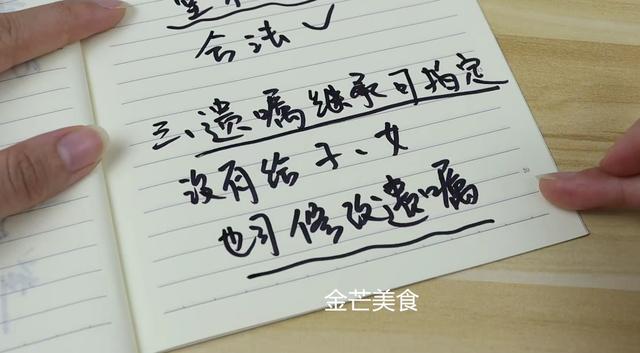 合法✓
三、遗嘱继承可指定
没有给子、女
也可修改遗嘱
金芒美食